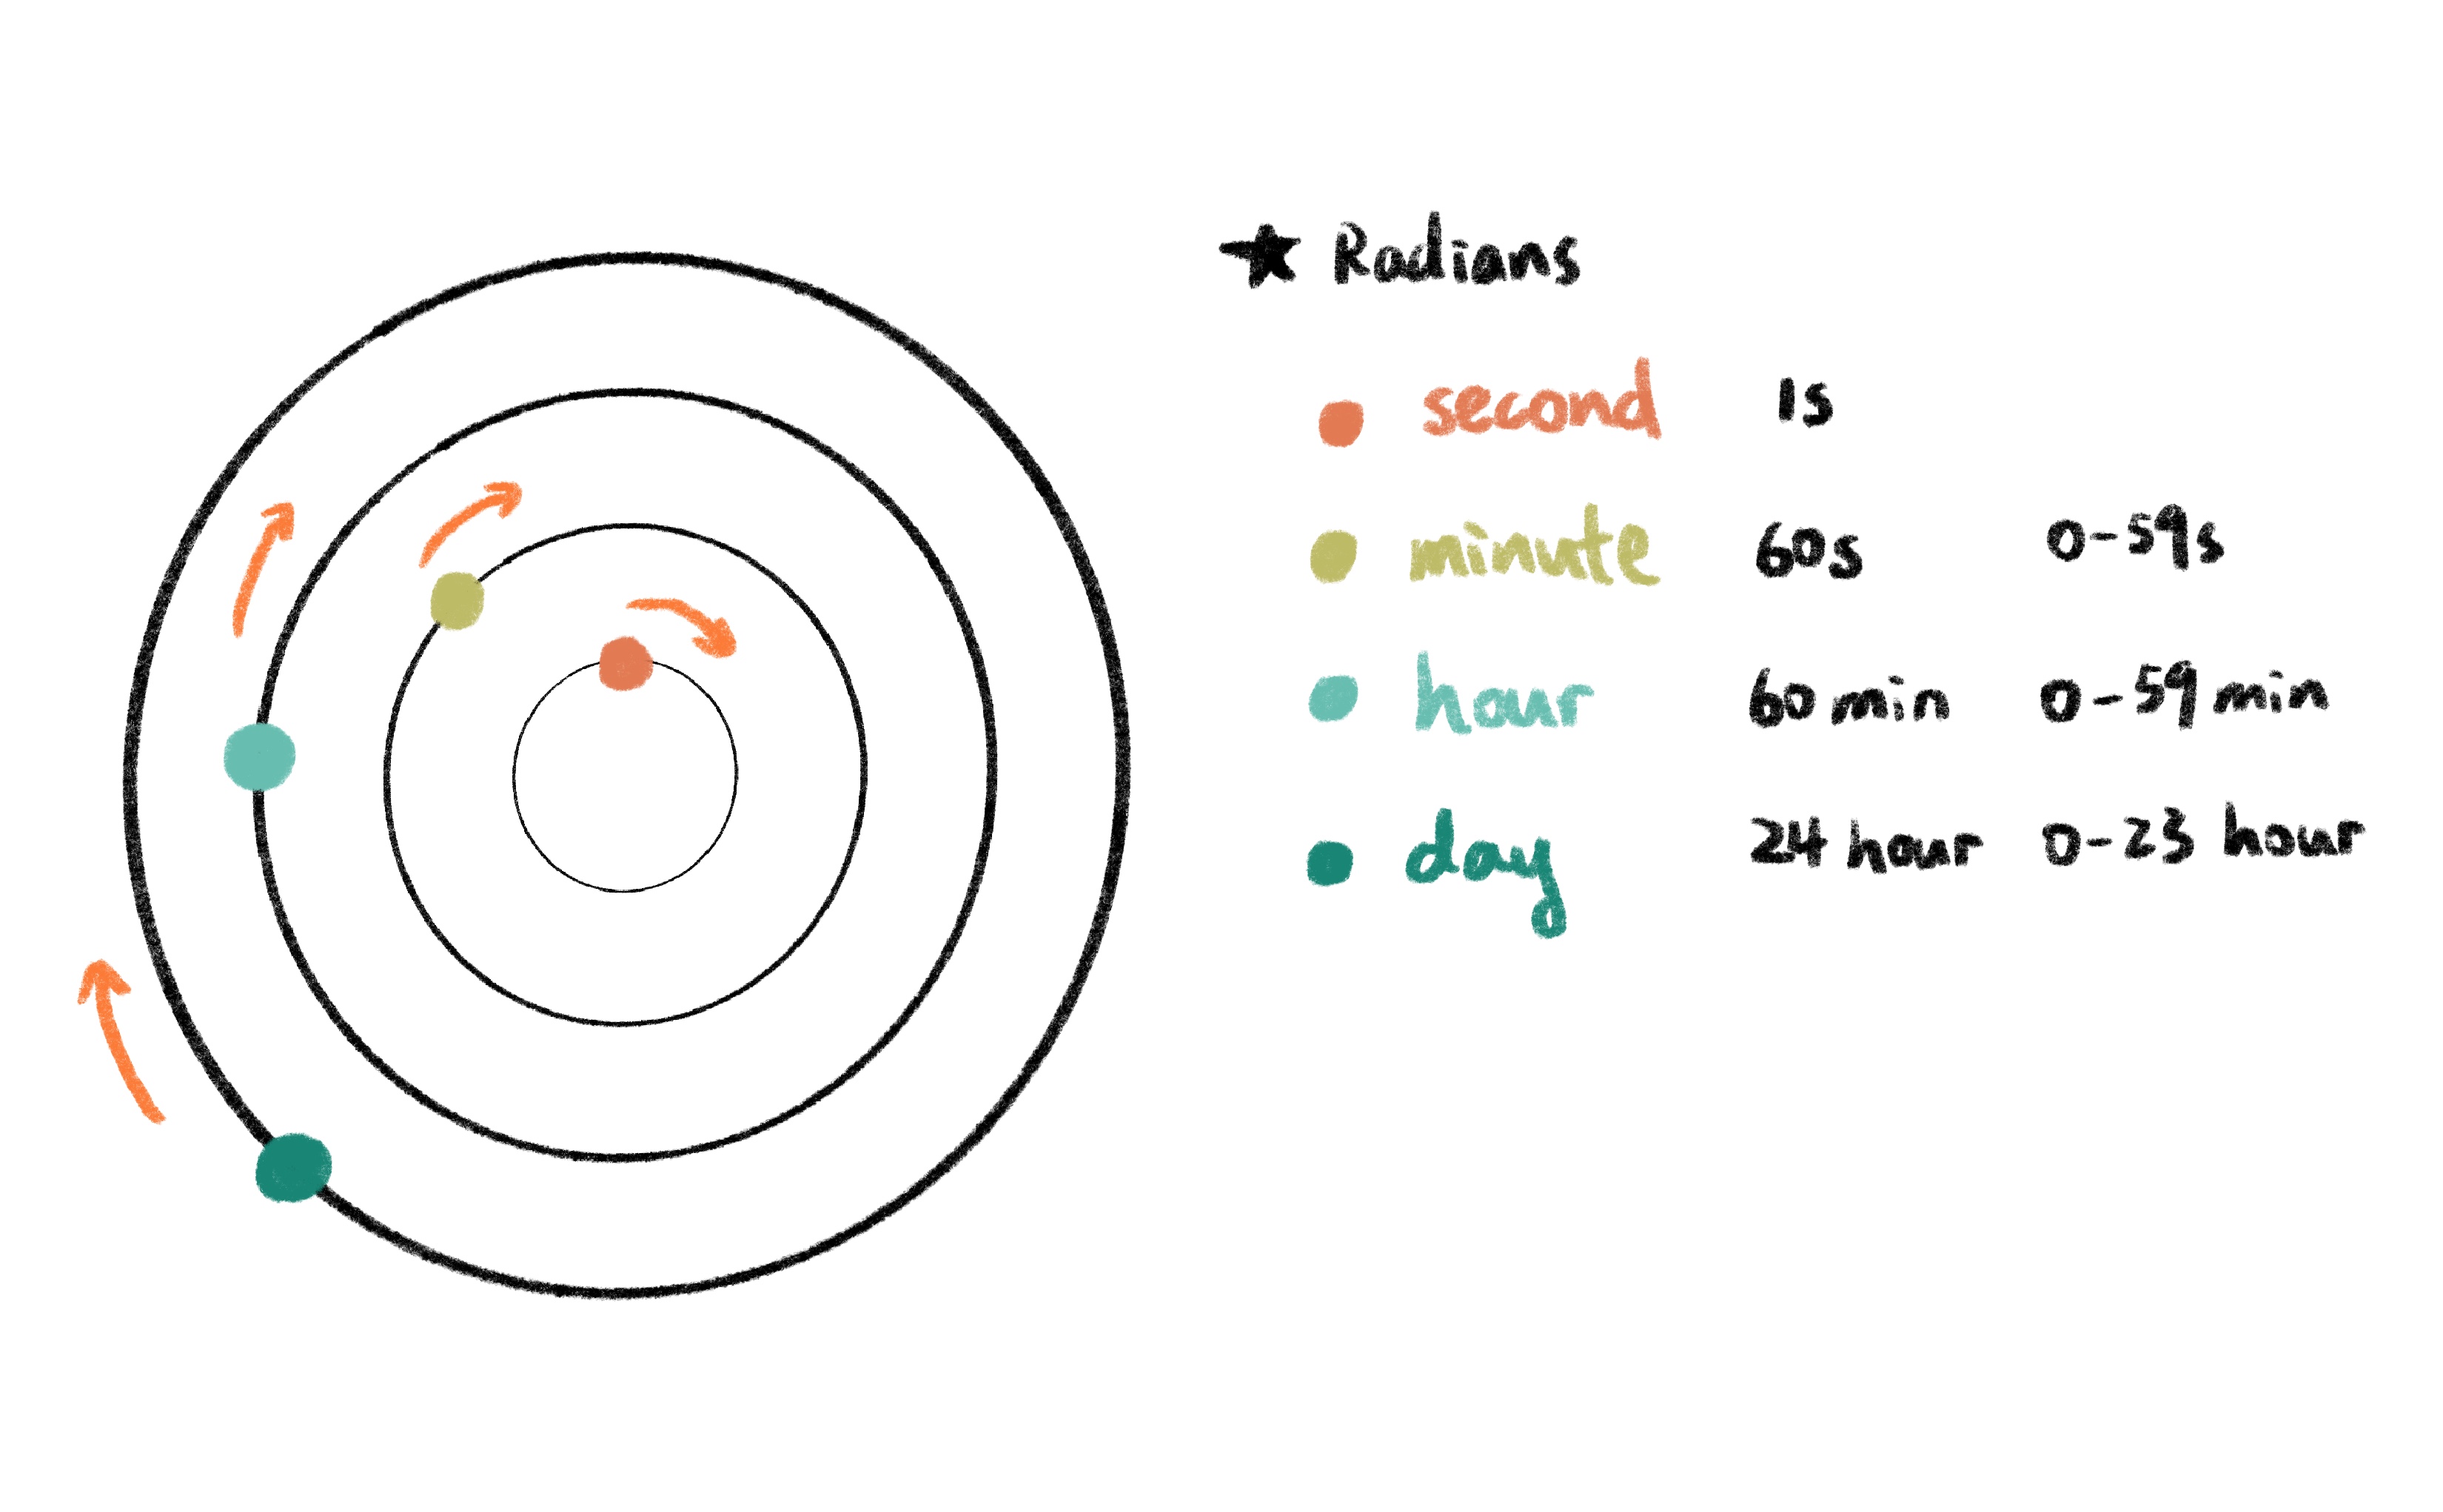 ★ Radians
second 1s
minute 60s 0-59s
hour 60 min 0-59 min
day 24 hour 0-23 hour